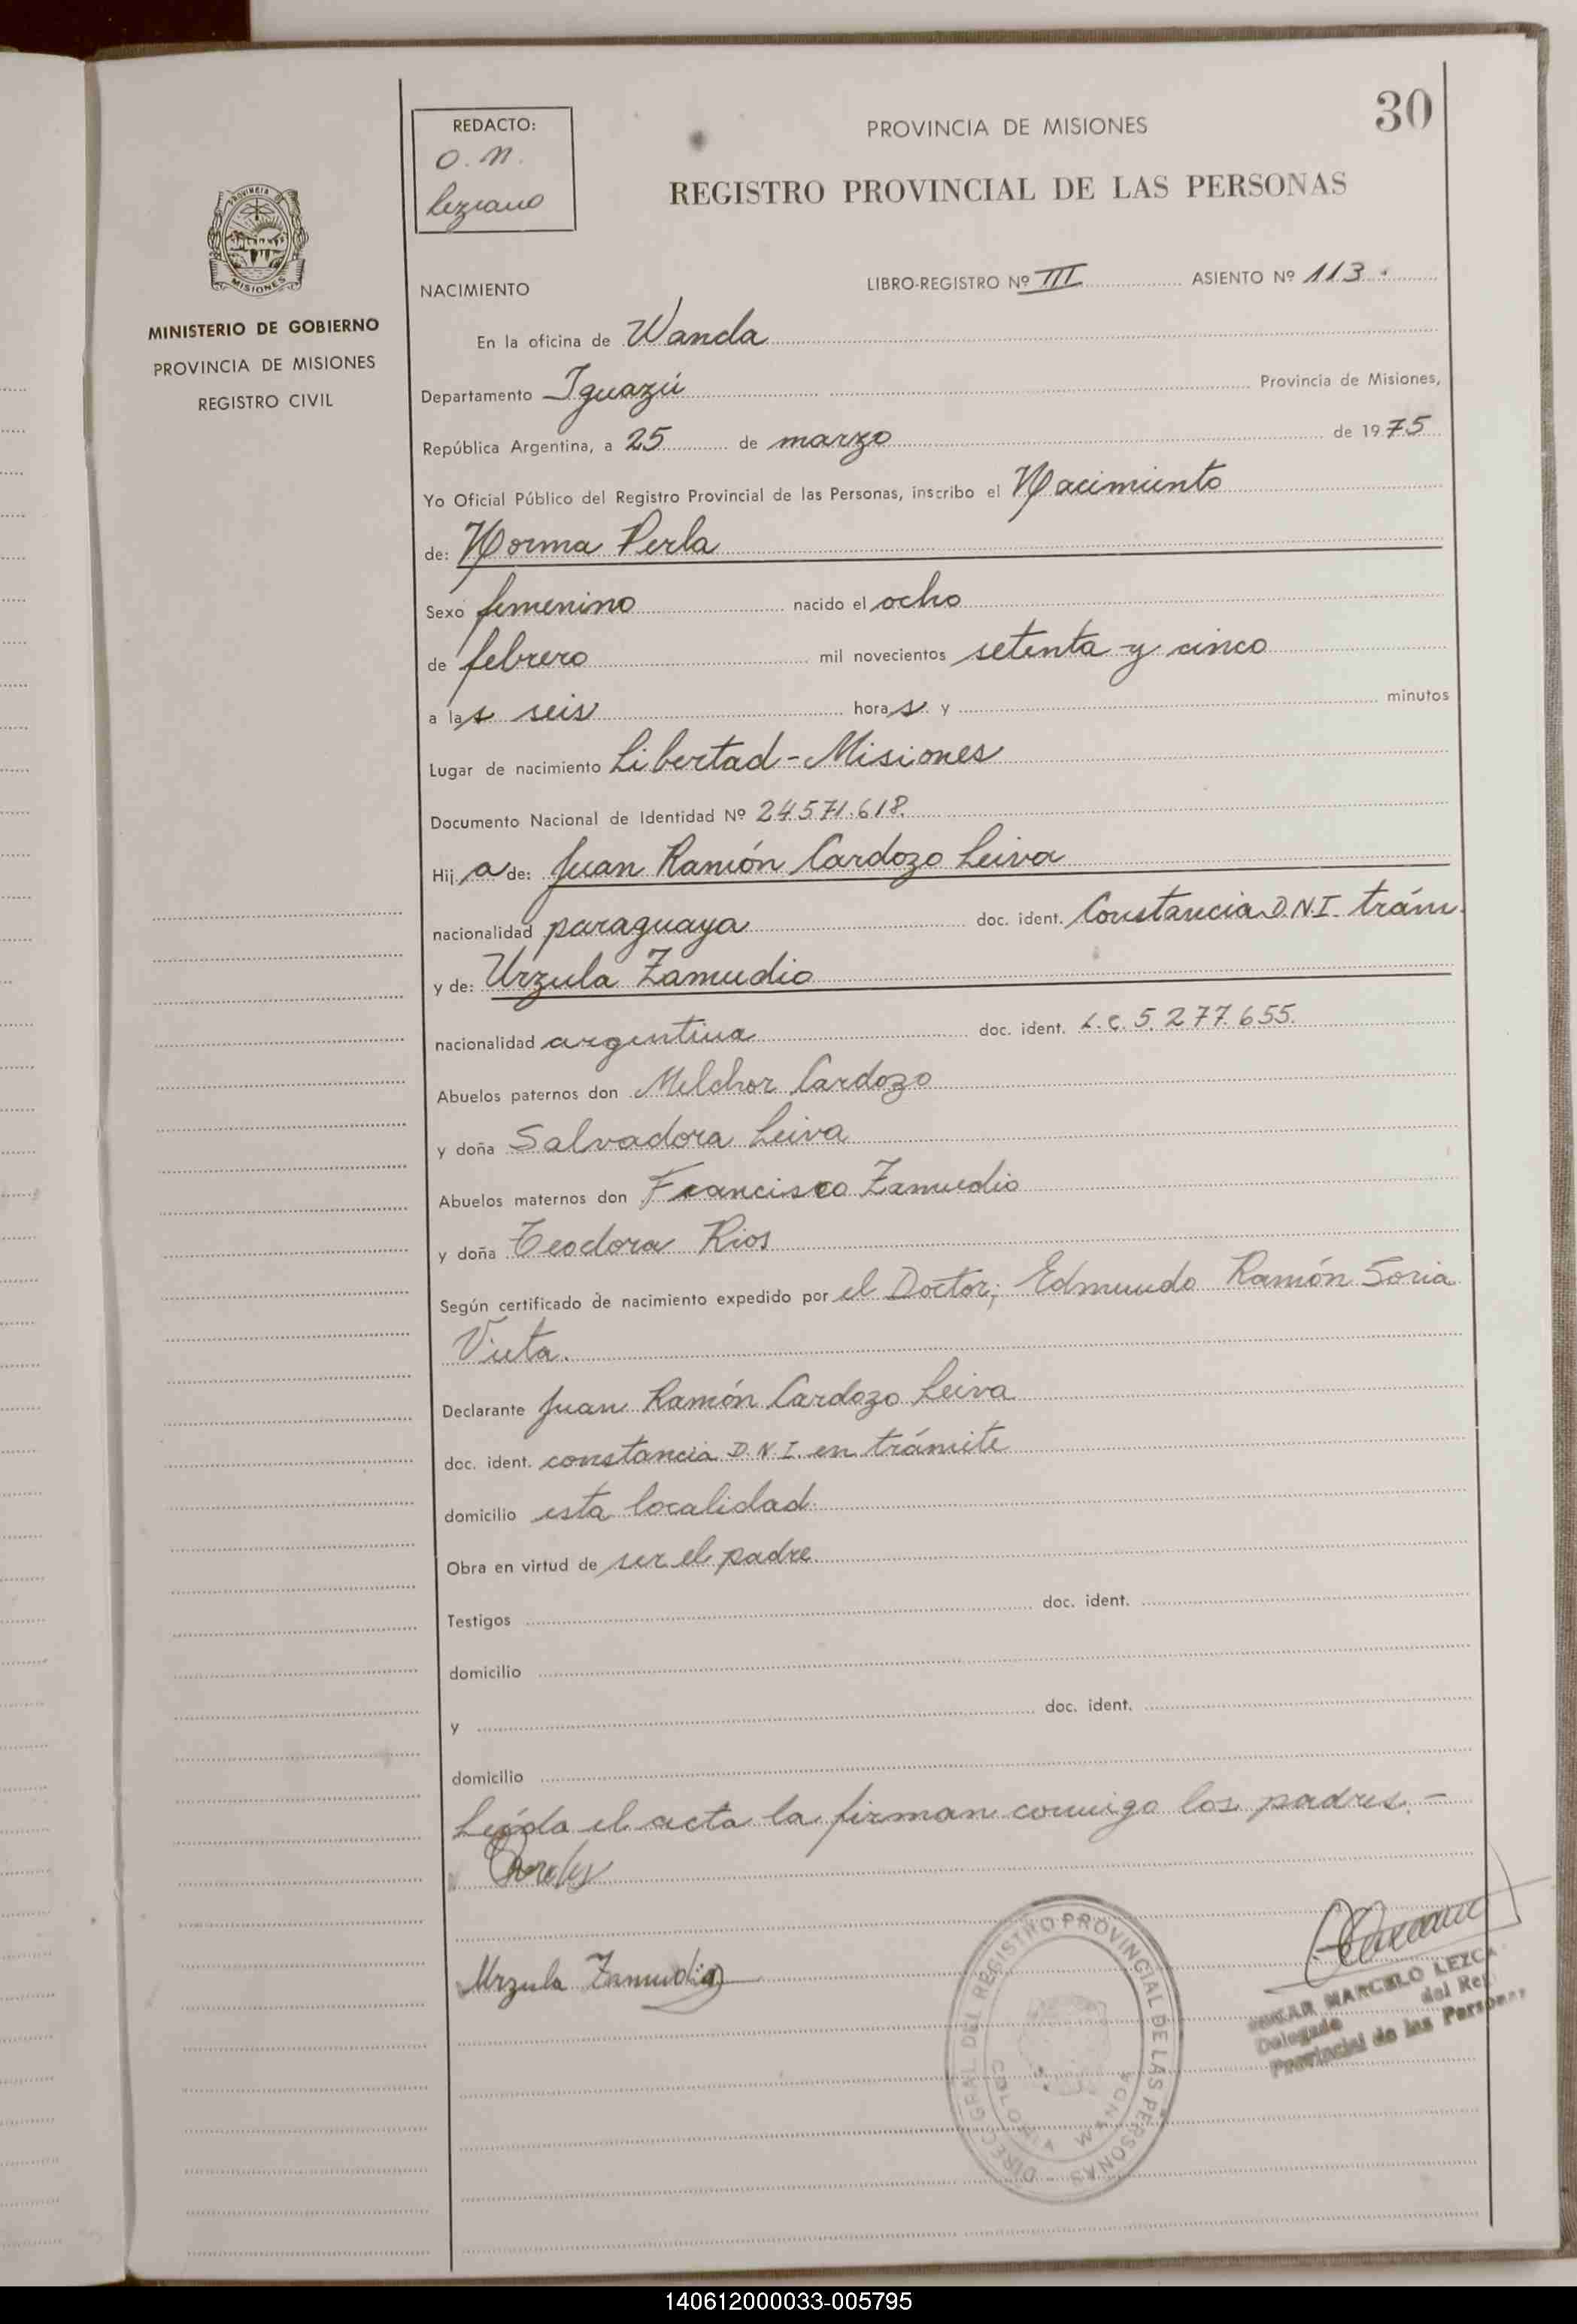 30
REDACTO:
O. N.
Lezcano
PROVINCIA DE MISIONES
REGISTRO PROVINCIAL DE LAS PERSONAS
PROVINCIA
MISIONES
MINISTERIO DE GOBIERNO
PROVINCIA DE MISIONES
REGISTRO CIVIL
NACIMIENTO LIBRO-REGISTRO Nº III ASIENTO Nº 113.
En la oficina de Wanda
Departamento Iguazú Provincia de Misiones,
República Argentina, a 25 de marzo de 1975
Yo Oficial Público del Registro Provincial de las Personas, inscribo el Nacimiento
de: Norma Perla
Sexo femenino nacido el ocho
de febrero mil novecientos setenta y cinco
a las seis horas y minutos
Lugar de nacimiento Libertad - Misiones
Documento Nacional de Identidad Nº 24.571.618.
Hija de: Juan Ramón Cardozo Leiva
nacionalidad paraguaya doc. ident. Constancia D.N.I trám.
y de: Urzula Zamudio
nacionalidad argentina doc. ident. L.C. 5.277.655.
Abuelos paternos don Melchor Cardozo
y doña Salvadora Leiva
Abuelos maternos don Francisco Zamudio
y doña Teodora Rios
Según certificado de nacimiento expedido por el Doctor; Edmundo Ramón Soria
Vieta.
Declarante Juan Ramón Cardozo Leiva
doc. ident. constancia D.N.I. en trámite
domicilio esta localidad.
Obra en virtud de ser el padre
Testigos doc. ident.
domicilio
y doc. ident.
domicilio
Leída el acta la firman conmigo los padres. -
Urzula Zamudio
DIREC. GRAL. DEL REGISTRO PROVINCIAL DE LAS PERSONAS
COLONIA WANDA
MARCELO LEZCA
Delegado del Reg
Provincial de las Personas
140612000033-005795